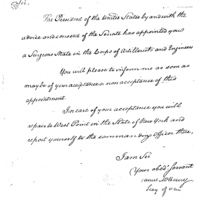 Sir.
The President of the United States by and with the
advice and consent of the Senate has appointed you
a Surgeons Mate in the Corps of Artillerists and Engineers
You will please to inform me as soon as
may be of your acceptance or non acceptance of this
appointment.
In case of your acceptance you will
repair to West Point in the State of New York and
report yourself to the commanding officer there.
I am Sir
Your obedt servant
James McHenry
Secy of War